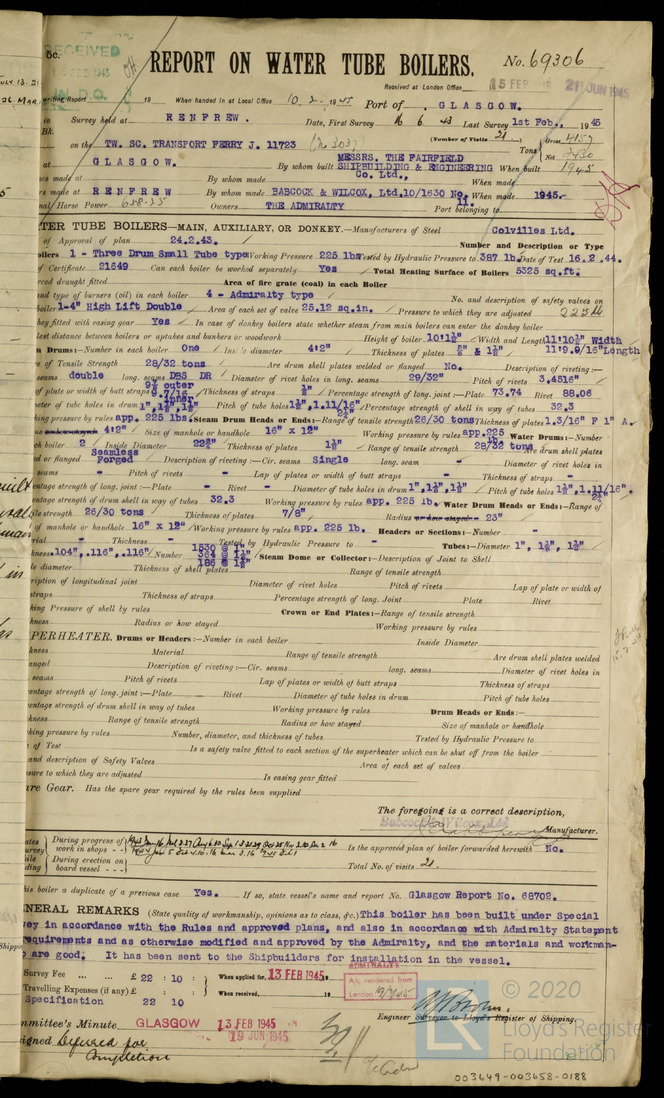 5c.
RECEIVED
FEB 1945
IN. D.O.
REPORT ON WATER TUBE BOILERS.
No. 69306
Received at London Office
15 FEB 1945
21 JUN 1945
writing Report 19 When handed in at Local Office 10. 2. 1945 Port of GLASGOW.
in Survey held at RENFREW. Date, First Survey 16 6 43 Last Survey 1st Feb., 1945
Bk. (Number of Visits 21)
on the TW. SC. TRANSPORT FERRY J. 11723 (No 3037) Tons Gross 4157 Net
at GLASGOW. By whom built MESSRS. THE FAIRFIELD SHIPBUILDING & ENGINEERING Co. Ltd., When built 1945
es made at By whom made When made
rs made at RENFREW By whom made BABCOCK & WILCOX, Ltd. 10/1630 No. 11. When made 1945.
nal Horse Power 658.25 Owners THE ADMIRALTY Port belonging to
TER TUBE BOILERS—MAIN, AUXILIARY, OR DONKEY.—Manufacturers of Steel Colvilles Ltd.
of Approval of plan 24.2.43. Number and Description or Type
oilers 1 - Three Drum Small Tube type Working Pressure 225 lbs Tested by Hydraulic Pressure to 387 lb. Date of Test 16.2.44.
of Certificate 21649 Can each boiler be worked separately Yes Total Heating Surface of Boilers 5325 sq.ft.
rced draught fitted Area of fire grate (coal) in each Boiler
and type of burners (oil) in each boiler 4 - Admiralty type No. and description of safety valves on
boiler 1-4" High Lift Double Area of each set of valve 25.12 sq.in. Pressure to which they are adjusted 225 lb
hey fitted with easing gear Yes In case of donkey boilers state whether steam from main boilers can enter the donkey boiler
lest distance between boilers or uptakes and bunkers or woodwork Height of boiler 10'1½" Width and Length 11'10½" Width 11'9.9/16" Length
m Drums:—Number in each boiler One Inside diameter 4'2" Thickness of plates
e of Tensile Strength 28/32 tons Are drum shell plates welded or flanged No. Description of riveting:—
seams double long. seams DBS DR Diameter of rivet holes in long. seams 29/32" Pitch of rivets 3.4516"
of plate or width of butt straps 9½ outer 9.7/16 inner Thickness of straps ½" Percentage strength of long. joint:—Plate 73.74 Rivet 88.06
eter of tube holes in drum 1", 1¼", 1½" Pitch of tube holes 1½", 1.11/16", 2¼" Percentage strength of shell in way of tubes 32.3
king pressure by rules app. 225 lbs. Steam Drum Heads or Ends:—Range of tensile strength 26/30 tons Thickness of plates 1.3/16" F 1" A.
4'2" Size of manhole or handhole 16" x 12" Working pressure by rules app. 225 lb. Water Drums:—Number
boiler 2 Inside Diameter Thickness of plates Range of tensile strength 28/32 tons Are drum shell plates
d or flanged Seamless Forged Description of riveting:—Cir. seams Single long. seam -
seams - Pitch of rivets - Lap of plates or width of butt straps - Thickness of straps -
entage strength of long. joint:—Plate - Rivet - Diameter of tube holes in drum 1", 1¼", 1½" Pitch of tube holes 1½", 1.11/16", 2¼"
entage strength of drum shell in way of tubes 32.3 Working pressure by rules app. 225 lb. Water Drum Heads or Ends:—Range of
ile strength 26/30 tons Thickness of plates 7/8" Radius or how stayed - 23"
of manhole or handhole 16" x 12" Working pressure by rules app. 225 lb. Headers or Sections:—Number -
rial - Thickness - Tested by Hydraulic Pressure to - Tubes:—Diameter 1", 1¼", 1½"
kness .104", .116", .116" Number 1530 @ 1" 364 @ 1¼" 186 @ 1½" Steam Dome or Collector:—Description of Joint to Shell
de diameter Thickness of shell plates Range of tensile strength
ription of longitudinal joint Diameter of rivet holes Pitch of rivets Lap of plate or width of
straps Thickness of straps Percentage strength of long. Joint Plate Rivet
king Pressure of shell by rules Crown or End Plates:—Range of tensile strength
kness Radius or how stayed Working pressure by rules
PERHEATER. Drums or Headers:—Number in each boiler Inside Diameter
kness Material Range of tensile strength Are drum shell plates welded
anged Description of riveting:—Cir. seams long. seams Diameter of rivet holes in
seams Pitch of rivets Lap of plates or width of butt straps Thickness of straps
entage strength of long. joint:—Plate Rivet Diameter of tube holes in drum Pitch of tube holes
entage strength of drum shell in way of tubes Working pressure by rules Drum Heads or Ends:—
kness Range of tensile strength Radius or how stayed Size of manhole or handhole
king pressure by rules Number, diameter, and thickness of tubes Tested by Hydraulic Pressure to
of Test Is a safety valve fitted to each section of the superheater which can be shut off from the boiler
and description of Safety Valves Area of each set of valves
sure to which they are adjusted Is easing gear fitted
are Gear. Has the spare gear required by the rules been supplied
The foregoing is a correct description,
Babcock & Wilcox, Ltd
Manufacturer.
ates During progress of work in shops - - Is the approved plan of boiler forwarded herewith No.
During erection on board vessel - - - Total No. of visits 21.
his boiler a duplicate of a previous case Yes. If so, state vessel's name and report No. Glasgow Report No. 68702.
NERAL REMARKS (State quality of workmanship, opinions as to class, &c.) This boiler has been built under Special
vey in accordance with the Rules and approved plans, and also in accordance with Admiralty Statement
requirements and as otherwise modified and approved by the Admiralty, and the materials and workman-
p are good. It has been sent to the Shipbuilders for installation in the vessel.
Survey Fee £ 22 : 10 When applied for, 13 FEB 1945
ADMIRALTY
A/c rendered from London
Travelling Expenses (if any) £ : : When received, 19
Specification 22 10
Engineer Surveyor to Lloyd's Register of Shipping.
mmittee's Minute GLASGOW 13 FEB 1945
19 JUN 1945
igned Deferred for Completion
© 2020
Lloyd's Register
Foundation
003649-003658-0188